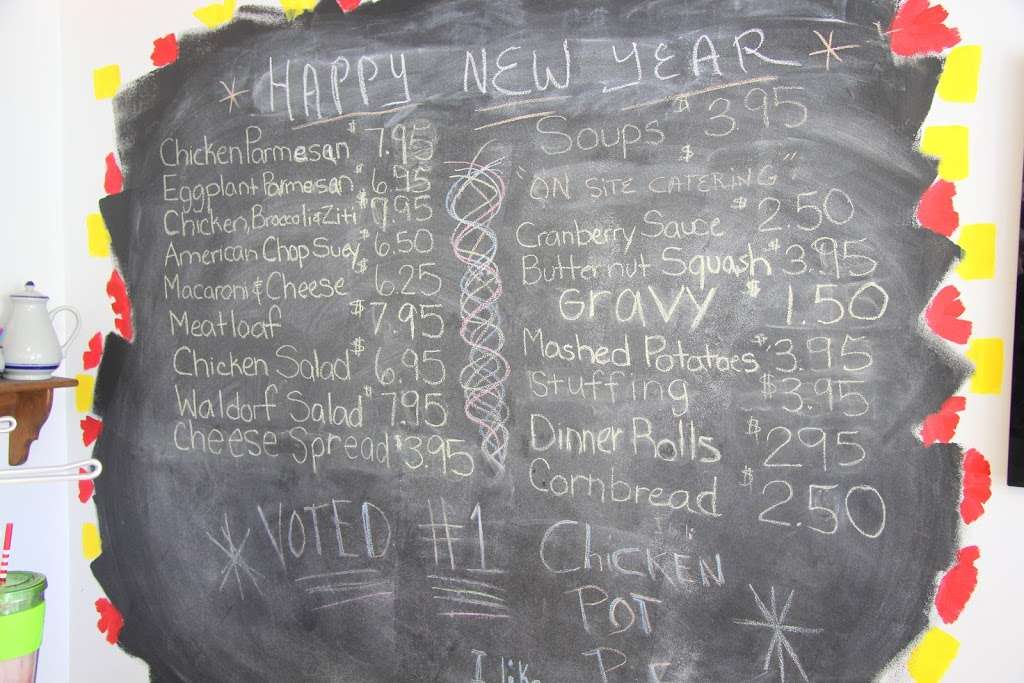 * HAPPY NEW YEAR *
Chicken Parmesan $7.95
Eggplant Parmesan $6.95
Chicken, Broccoli & Ziti $7.95
American Chop Suey $6.50
Macaroni & Cheese $6.25
Meatloaf $7.95
Chicken Salad $6.95
Waldorf Salad $7.95
Cheese Spread $3.95
Soups $3.95
"ON SITE CATERING"
Cranberry Sauce $2.50
Butternut Squash $3.95
GRAVY $1.50
Mashed Potatoes $3.95
Stuffing $3.95
Dinner Rolls $295
Cornbread $2.50
* VOTED #1
CHICKEN
POT *